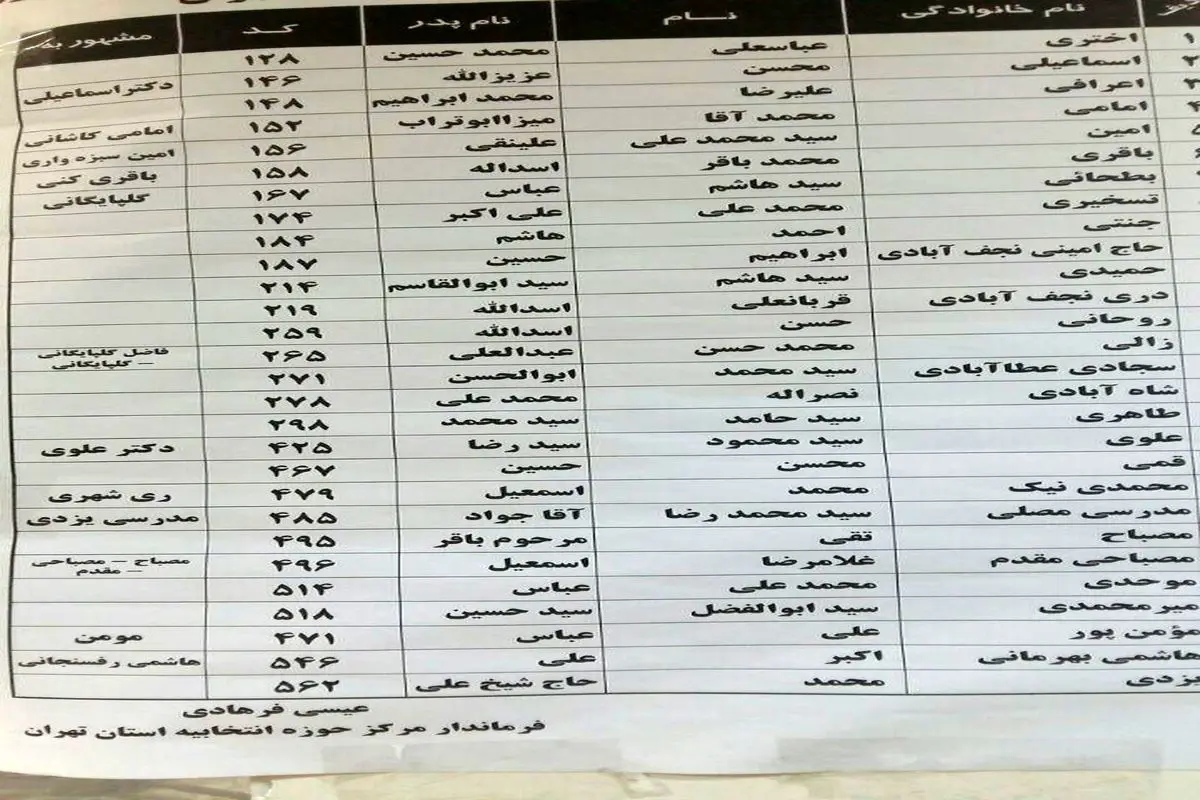 نام خانوادگی نــام نام پدر کـد مشهور به
۱ اختری عباسعلی محمد حسین ۱۲۸
۲ اسماعیلی محسن عزیزالله ۱۴۶ دکتراسماعیلی
۳ اعرافی علیرضا محمد ابراهیم ۱۴۸
امامی محمد آقا میزاابوتراب ۱۵۲ امامی کاشانی
امین سید محمد علی علینقی ۱۵۶ امین سبزه واری
باقری محمد باقر اسداله ۱۵۸ باقری کنی
بطحائی سید هاشم عباس ۱۶۷ گلپایگانی
تسخیری محمد علی علی اکبر ۱۷۴
جنتی احمد هاشم ۱۸۴
حاج امینی نجف آبادی ابراهیم حسین ۱۸۷
حمیدی سید هاشم سید ابوالقاسم ۲۱۴
دری نجف آبادی قربانعلی اسدالله ۲۱۹
روحانی حسن اسدالله ۲۵۹
زالی محمد حسن عبدالعلی ۲۶۵ فاضل گلپایگانی
– گلپایگانی
سجادی عطاآبادی سید محمد ابوالحسن ۲۷۱
شاه آبادی نصراله محمد علی ۲۷۸
طاهری سید حامد سید محمد ۲۹۸
علوی سید محمود سید رضا ۴۲۵ دکتر علوی
قمی محسن حسین ۴۶۷
محمدی نیک محمد اسمعیل ۴۷۹ ری شهری
مدرسی مصلی سید محمد رضا آقا جواد ۴۸۵ مدرسی یزدی
مصباح تقی مرحوم باقر ۴۹۵
مصباحی مقدم غلامرضا اسمعیل ۴۹۶ مصباح – مصباحی
– مقدم
موحدی محمد علی عباس ۵۱۴
میرمحمدی سید ابوالفضل سید حسین ۵۱۸
مؤمن پور علی عباس ۴۷۱ مومن
هاشمی بهرمانی اکبر علی ۵۴۶ هاشمی رفسنجانی
یزدی محمد حاج شیخ علی ۵۶۲
عیسی فرهادی
فرماندار مرکز حوزه انتخابیه استان تهران